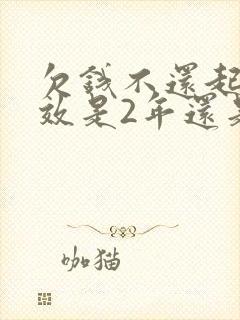 欠錢不還起
效是2年還是
咖猫